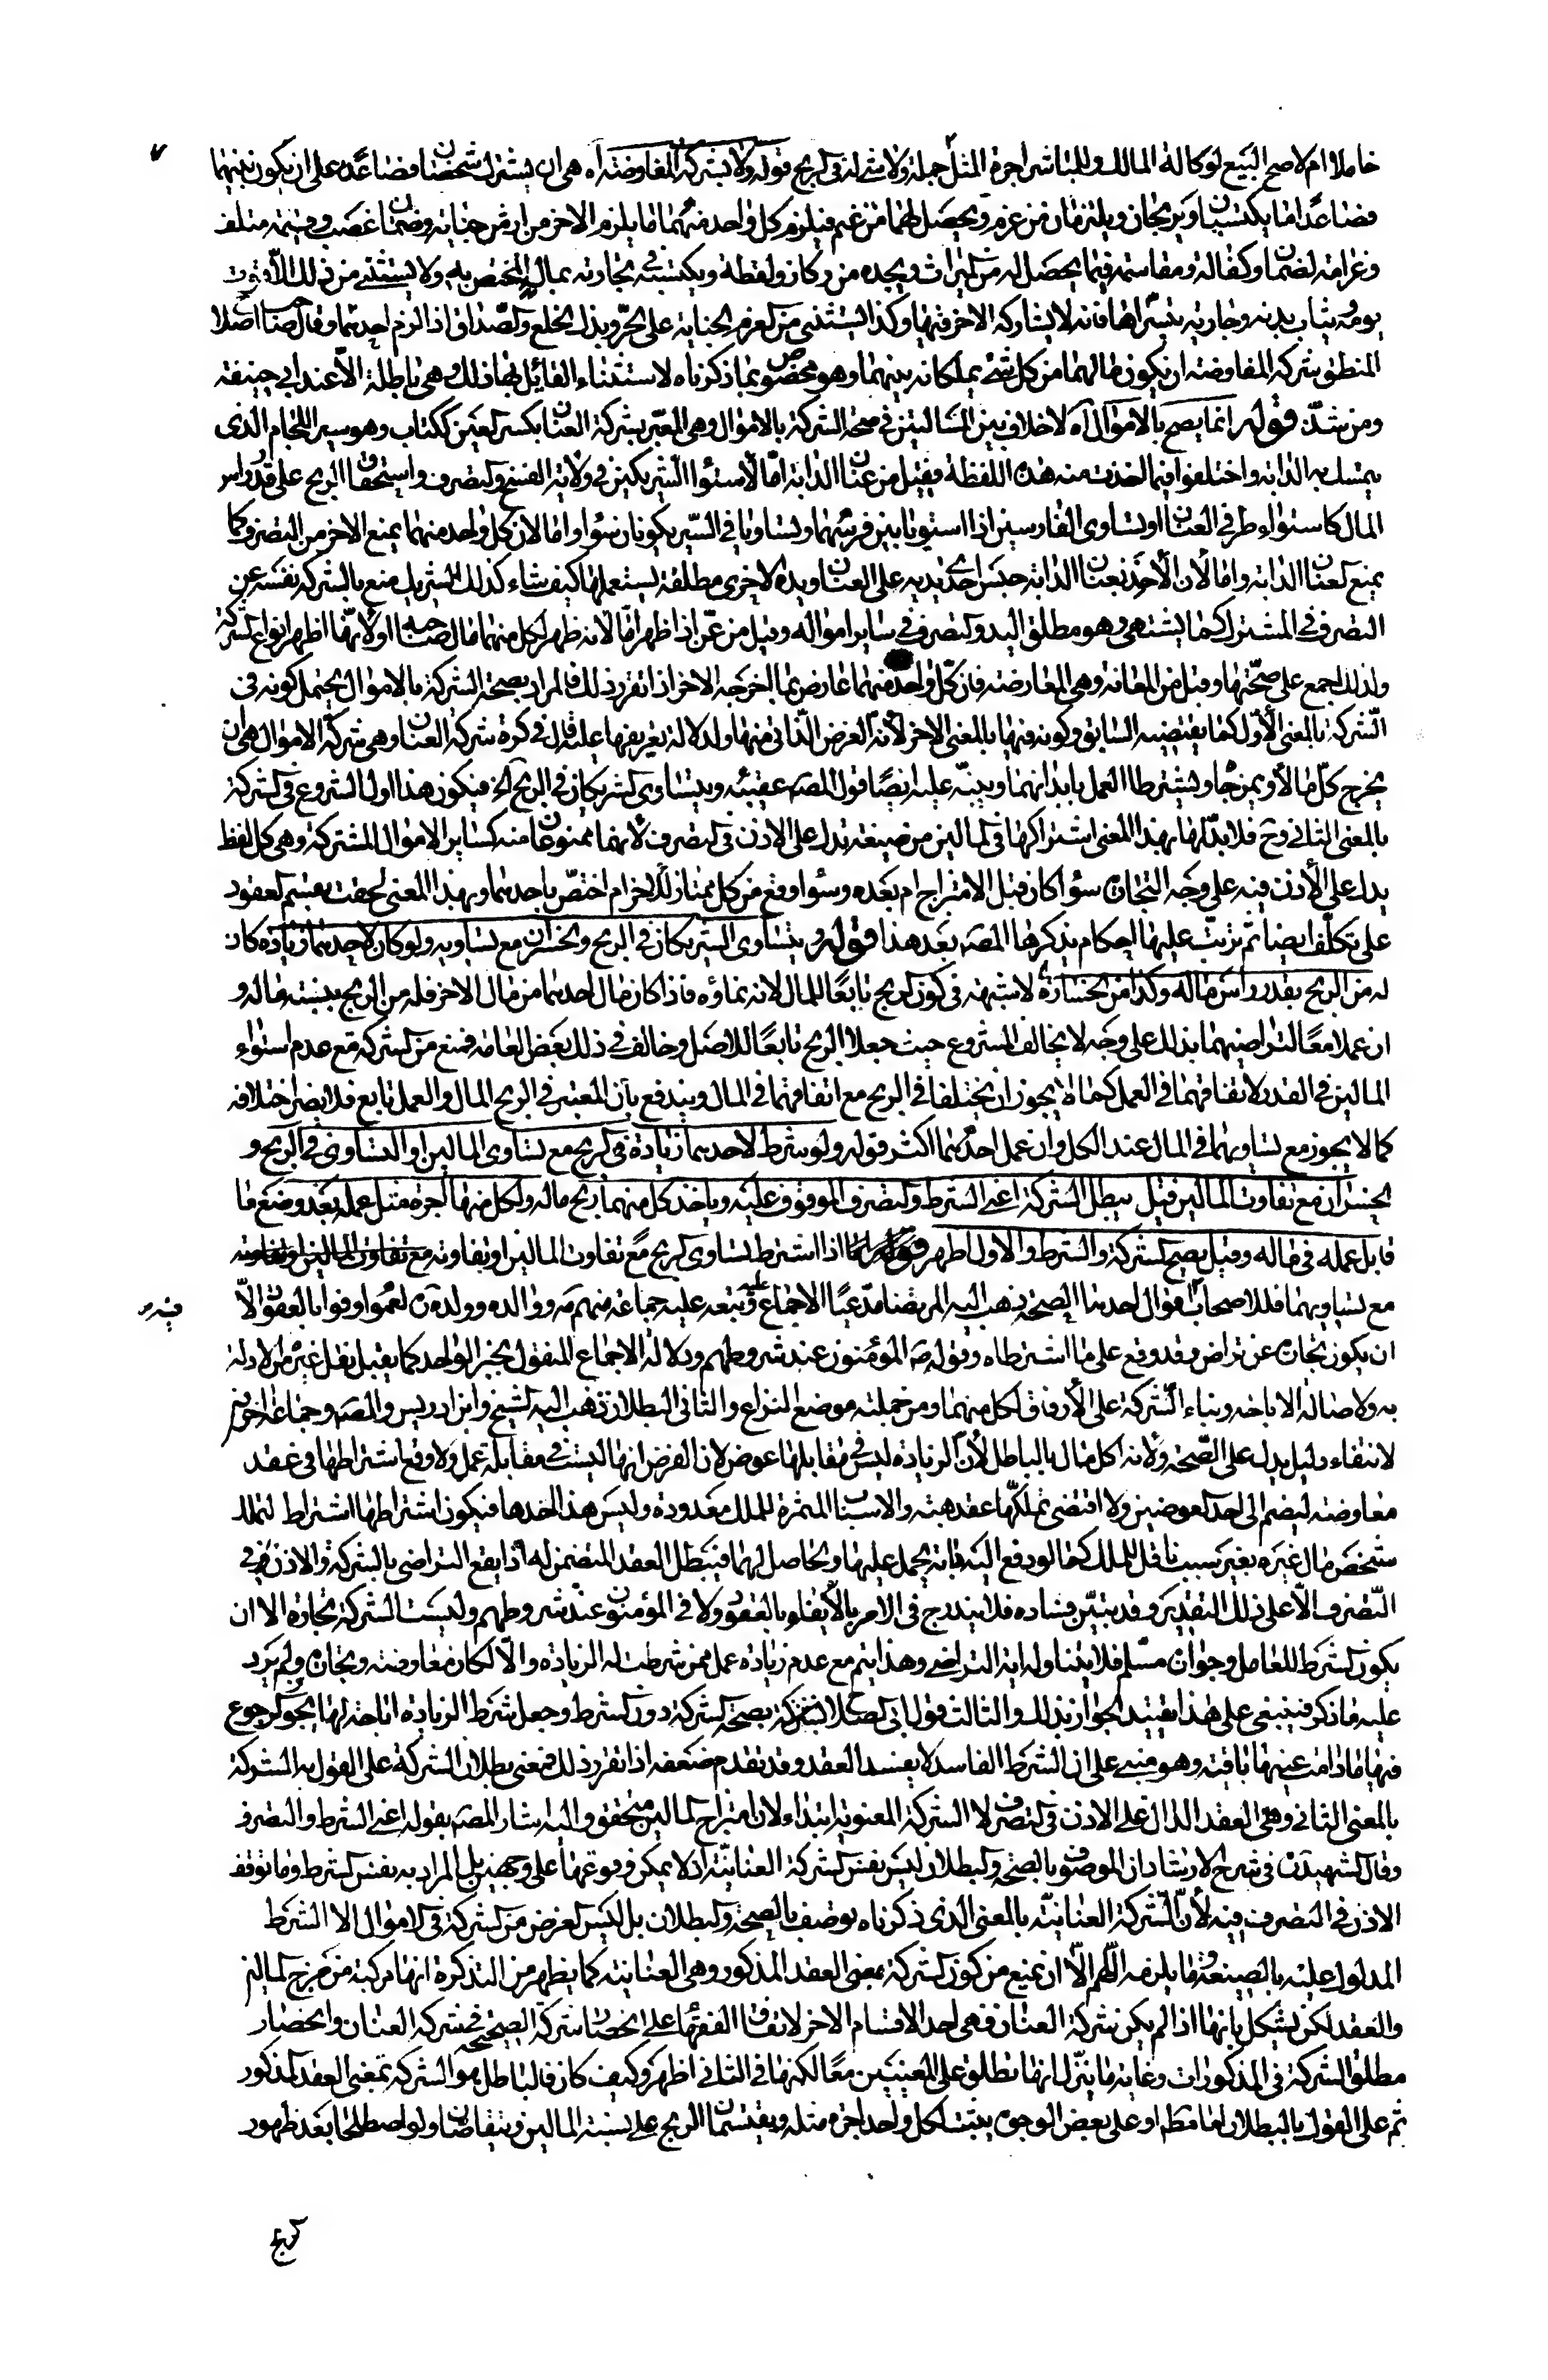 خاملا ام لا صح البيع لوكالة المالك وللمباشر اجرة المثل جملة ولا شيء له في الربح قوله ولا بشركة المفاوضة اه هي ان يشترك شخصان فصاعدا على ان يكون بينهما
فصاعدا ما يكتسبان ويربحان ويلتزمان من غرم ويحصل لهما من غنم فيلزم كل واحد منهما ما يلزم الاخر من ارش جناية وضمان غصب وقيمة متلف
وغرامة لضمان وكفالة ومقاسمة فيما يحصل له من ميراث ويجده من ركاز ولقطة ويكتسبه في تجارته بماله المختص به ولا يستثنى من ذلك الا قوت
يومه وثياب بدنه وجارية يتسراها فانه لا يشاركه الاخر فيها وكذا يستثنى من الغرم الجناية على الحر وبذل الخلع والصداق اذا لزم احدهما وقال صاحب اصلاح
المنطق شركة المفاوضة ان يكون مالهما من كل شيء يملكانه بينهما وهو مخصوص بما ذكرناه لاستثناء القائل بها ذلك وهي باطلة الا عند ابي حنيفة
ومن شذ قوله انما يصح بالاموال اه لا خلاف بين المسلمين في صحة الشركة بالاموال وهي المعبر بشركة العنان بكسر العين ككتاب وهو سير اللجام الذي
يمسك به الدابة واختلفوا فيما اخذت منه هذه اللفظة فقيل من عنان الدابة اما لاستواء الشريكين في ولاية الفسخ والتصرف واستحقاق الربح على قدر راس
المال كاستواء طرفي العنان او تساوي الفارسين اذا استويا بين فرسيهما وتساويا في السير يكونان سواء واما لان كل واحد منهما يمنع الاخر من التصرف كما
يمنع لعنان الدابة واما لان الاخذ بعنان الدابة حبس احدى يديه على العنان ويده الاخرى مطلقة يستعملها كيف شاء كذلك الشريك منع بالشركة نفسه عن
التصرف في المشترك كما يشتهي وهو مطلق اليد والتصرف في ساير امواله وقيل من عن اذا ظهر اما لانه ظهر لكل منهما مال صاحبه او لانها اظهر انواع الشركة
ولذلك اجمع على صحتها وقيل من المعانة وهي المعارضة فان كل واحد منهما عارض بما اخرجه الاخر اذا تقرر ذلك فالمراد بصحة الشركة بالاموال يحتمل كونه في
الشركة بالمعنى الاول كما يقتضيه السابق وكونه فيها بالمعنى الاخر لانه الغرض الذاتي منها ولدلالة تعريفها عليه قال في كرة شركة العنان وهي شركة الاموال هي ان
يخرج كل مالا ويمزجا ويشترطا العمل بابدانهما وينبه عليه ايضا قول المصه عقيبه ويتساوى الشريكان في الربح الخ فيكون هذا اول الشروع في الشركة
بالمعنى الثاني وح فلا بد لها بهذا المعنى اشتراكها في المالين من صيغة تدل على الاذن في التصرف لانهما ممنوعان منه كساير الاموال المشتركة وهي كل لفظ
يدل على الاذن فيه على وجه التجارة سواء كان قبل الامتزاج ام بعده وسواء وقع من كل ممتاز للاخر ام اختص باحدهما وبهذا المعنى لحقت بقسم العقود
على تكلف ايضا ثم ترتب عليها احكام يذكرها المصه بعد هذا قوله ويتساوى الشريكان في الربح والخسران مع تساويه ولو كان لاحدهما زيادة كان
له من الربح بقدر راس ماله وكذا من الخسارة لا شبهة في كون الربح تابعا للمال لانه نماؤه فاذا كان مال احدهما من مال الاخر فله من الربح بنسبة ماله و
ان عملا معا لتراضيهما بذلك على وجه لا يخالف المشروع حيث جعلا الربح تابعا للاصل وخالف في ذلك بعض العامة فمنع من الشركة مع عدم استواء
المالين في القدر لاتفاقهما في العمل كما لا يجوز ان يختلفا في الربح مع اتفاقهما في المال ويندفع بان المعتبر في الربح المال والعمل تابع فلا يضر اختلافه
كما لا يجوز مع تساويهما في المال عند الكل وان عمل احدهما اكثر قوله ولو شرط لاحدهما زيادة في الربح مع تساوي المالين او التساوي في الربح و
الخسران مع تفاوت المالين قيل يبطل الشركة اعني الشرط والتصرف الموقوف عليه وياخذ كل منهما ربح ماله ولكل منهما اجرة مثل عمله بعد وضع ما
قابل عمله في ماله وقيل يصح الشركة والشرط والاول اظهر اذا اشترط تساوي الربح مع تفاوت المالين او تفاوته مع تفاوت المالين او تفاوته
مع تساويهما فللاصحاب اقوال احدها الصحة ذهب اليه المرتضى مدعيا عليه الاجماع وتبعه عليه جماعة منهم مه ووالده وولده لعموم اوفوا بالعقود الا
ان يكون تجارة عن تراض وقد وقع على ما اشترطاه وقوله ص المؤمنون عند شروطهم ودلالة الاجماع المنقول بخبر الواحد كما يقبل نقل غيره من الادلة
به ولاصالة الاباحة وبناء الشركة على الارفاق لكل منهما ومن جملته موضع النزاع والثاني البطلان ذهب اليه الشيخ وابن ادريس والمصه وجماعة اخرى
لانتفاء دليل يدل على الصحة ولانه اكل مال بالباطل لان الزيادة ليس في مقابلها عوض لان الفرض انها ليست في مقابلة عمل ولا وقع اشتراطها في عقد
معاوضة ليضم الى احد العوضين ولا اقتضى تملكها عقد هبة والاسباب المثمرة للملك معدودة وليس هذا احدها فيكون اشتراطها اشتراط لتملك
شخص مال غيره بغير سبب ناقل للملك كما لو دفع اليه دابة يحمل عليها والحاصل لهما فيبطل العقد المتضمن له اذ لم يقع التراضي بالشركة والاذن في
التصرف الا على ذلك التقدير وقد تبين فساده فلا يندرج في الامر بالايفاء بالعقود ولا في المؤمنون عند شروطهم وليست الشركة تجارة الا ان
يكون الشرط للعامل وجوازه مسلم فلا يتناوله اية التراضي وهذا يتم مع عدم زيادة عمل ممن شرطت له الزيادة والا لكان معاوضة وتجارة ولم يرد
عليه ما ذكر فينبغي على هذا تقييد الجواز بذلك والثالث قول ابي الصلاح بصحة الشركة دون الشرط وجعل شرط الزيادة اباحة لها يجوز الرجوع
فيها ما دامت عينها باقية وهو مبني على ان الشرط الفاسد لا يفسد العقد وقد تقدم ضعفه اذا تقرر ذلك فمعنى بطلان الشركة على القول به الشركة
بالمعنى الثاني وهي العقد الدال على الاذن في التصرف لا الشركة المعنوية ابتداء لان امتزاج المالين متحقق واليه اشار المصه بقوله اعني الشرط والتصرف
وقال الشهيد ره في شرح الارشاد ان الموصوف بالصحة والبطلان ليس نفس الشركة العنانية اذ لا يمكن وقوعها على وجهين بل المراد به نفس الشرط وما توقف
الاذن في التصرف فيه لان الشركة العنانية بالمعنى الذي ذكرناه توصف بالصحة والبطلان بل ليس الغرض من الشركة في الاموال الا الشرط
المدلول عليه بالصيغة وما يلزمه اللهم الا ان يمنع من كون الشركة بمعنى العقد المذكور وهي العنانية كما يظهر من التذكرة انها مركبة من مزج المالين
والعقد لكن يشكل بانها اذا لم يكن شركة العنان فهي احد الاقسام الاخر لاتفاق الفقهاء على انحصار شركة الصحيحة في شركة العنان وانحصار
مطلق الشركة في المذكورات وغاية ما يتنزل انها تطلق على المعنيين معا لكنها في الثاني اظهر وكيف كان فالباطل هو الشركة بمعنى العقد المذكور
ثم على القول بالبطلان اما مطلقا او على بعض الوجوه يثبت لكل واحد اجرة مثله ويقتسمان الربح على نسبة المالين ويتقاصان ولو اصطلحا بعد ظهور